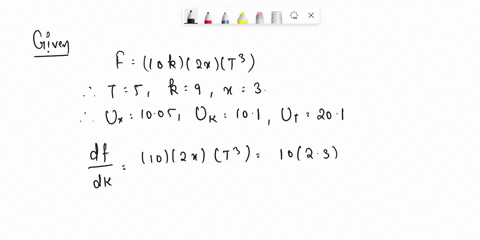 Given
F = (10k)(2x)(T³)
∴ T = 5, k = 9, x = 3.
∴ Ux = 10.05, Uk = 10.1, UT = 20.1
df/dk = (10)(2x)(T³) = 10(2.3)